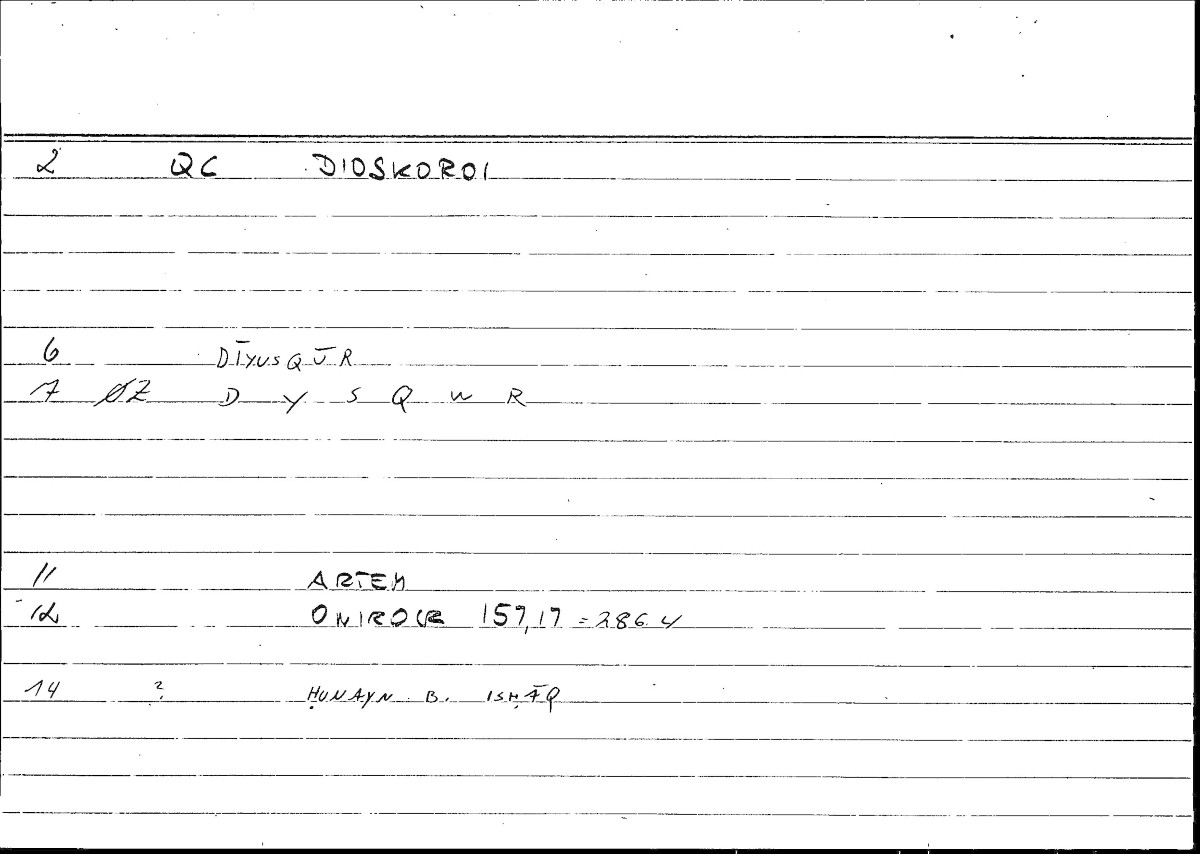 2 QC DIOSKOROI
6 DĪYUSQŪR
7 ØZ D Y S Q W R
11 ARTEM
12 ONIROCR 157,17 = 286.4
14 ? ḤUNAYN B. ISḤĀQ